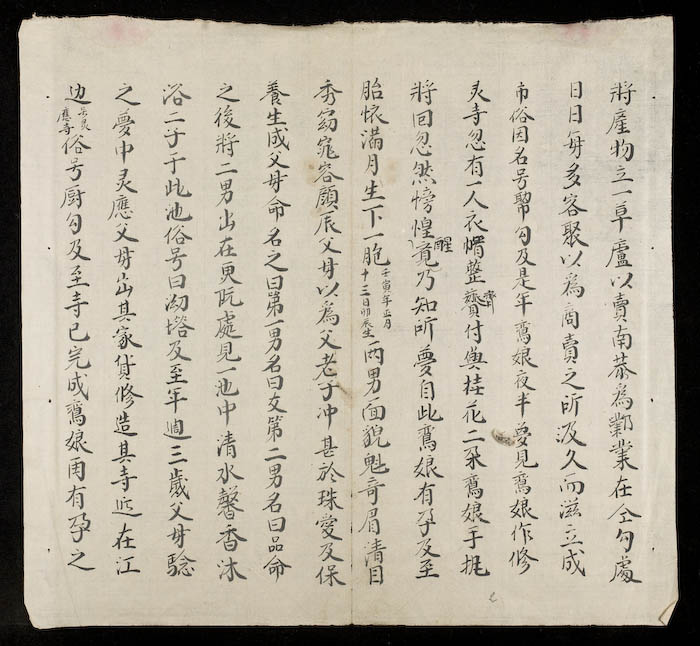 將產物立一草廬以賣南茶為鄴業在仝勾處
日日每多客聚以為商賣之所及久而滋立成
市俗因名号幇勾及是年鸞娘夜半夢見鸞娘作修
灵寺忽有一人衣帽整齊賷付與桂花二朶鸞娘手把
將回忽然惶覔醒乃知所夢自此鸞娘有孕及至
胎懷滿月生下一胞壬寅年正月十三日卯辰生两男面貌魁竒眉清目
秀窈窕容顏辰父母以為父老子冲甚於珠愛及保
養生成父母命名之曰第一男名曰文第二男名曰品命
之後將二男出在更阮處見一池中清水馨香沐
浴二子于此池俗号曰㘭塔及至年週三歲父母騐
之夢中灵應父母出其家貲修造其寺近在江
边号灵應寺俗号厨勾及至寺已完成鸞娘再有孕之